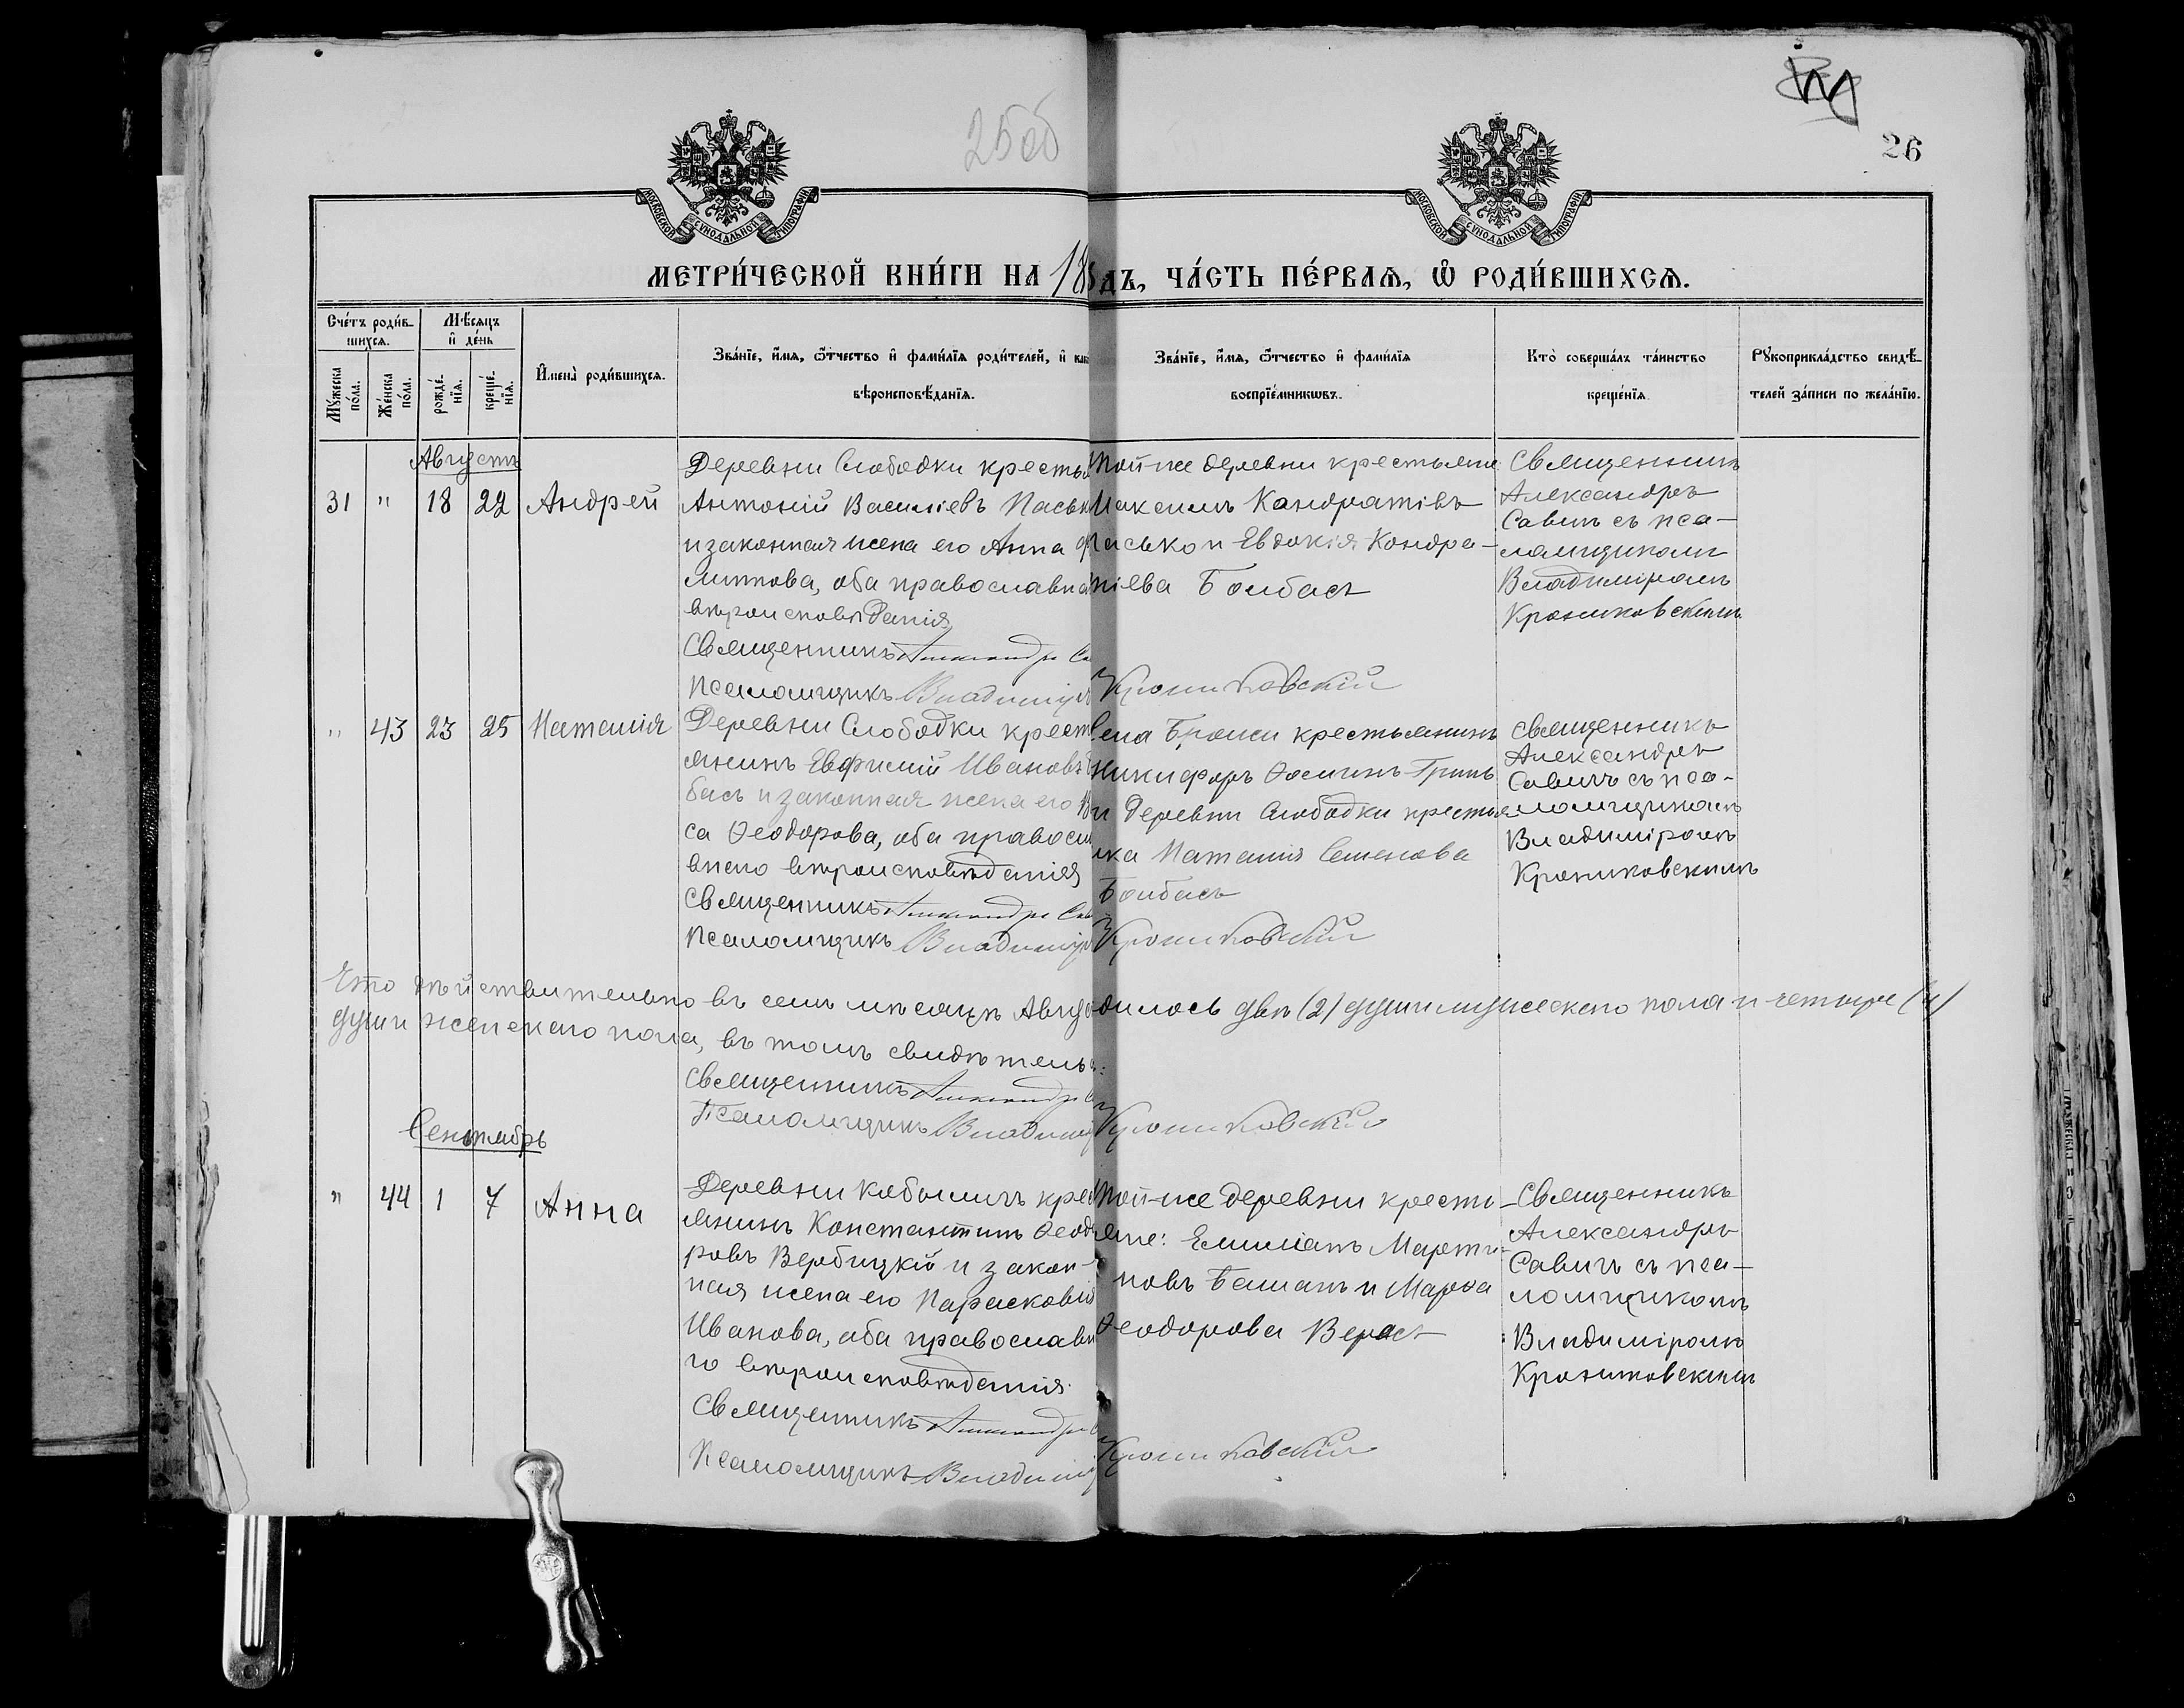 25об
26
МОСКОВСКОЙ СѴНОДАЛЬНОЙ ТИПОГРАФІИ
МОСКОВСКОЙ СѴНОДАЛЬНОЙ ТИПОГРАФІИ
МЕТРИ́ЧЕСКОЙ КНИ́ГИ НА 18
дъ, ЧА́СТЬ ПЕ́РВАѦ, Ѡ РОДИ́ВШИХСѦ.
Счéтъ роди́в-
шихсѧ.
Мꙋ́жеска по́ла.
Же́нска по́ла.
Мѣ́сѧцъ
и҆ де́нь
рожде́-нїѧ.
креще́-нїѧ.
И҆мена̀ роди́вшихсѧ.
Зва́нїе, и҆́мѧ, ѻ҆́тчество и҆ фами́лїѧ роди́телей, и҆ как
вѣроисповѣ́данїѧ.
Зва́нїе, и҆́мѧ, ѻ҆́тчество и҆ фами́лїѧ
воспрїе́мникѡвъ.
Кто̀ соверша́лъ та́инство
креще́нїѧ.
Рꙋкоприкла́дство свидѣ́-
телей за́писи по жела́нїю.
Августъ
31 " 18 22 Андрей
Деревни Слободки кресть
Антоній Василіевъ Паськ
и законная жена его Анна
липова, оба православна
вѣроисповѣданія
Священникъ Александръ Са
Псаломщикъ Владиміръ
той-же деревни крестьяне
Максимъ Кондратіевъ
Пасько и Евдокія Кондра-
тіева Болбасъ
Крониковскій
Священникъ
Александръ
Савичъ съ пса-
ломщикомъ
Владиміромъ
Крониковскимъ
" 43 23 25 Наталія
Деревни Слободки крест
янинъ Евфимій Ивановъ
басъ и законная жена его
са Ѳеодорова, оба правосл
внаго вѣроисповѣданія
Священникъ Александръ Сав
Псаломщикъ Владиміръ
села Броши крестьянинъ
Никифоръ Ѳоминъ Гринь
и деревни Слободки крестья
нка Наталія Семенова
Болбасъ
Крониковскій
Священникъ
Александръ
Савичъ съ пса-
ломщикомъ
Владиміромъ
Крониковскимъ
Что дѣйствительно въ семъ мѣсяцѣ Авгус
дилось двѣ (2) души мужескаго пола и четыре (4)
души женскаго пола, въ томъ свидѣтельс
Священникъ Александръ
Псаломщикъ Владимі
Крониковскій
Сентябрь
" 44 1 7 Анна
Деревни Кобыличъ крес
янинъ Константинъ Ѳеод
ровъ Вербицкій и закон-
ная жена его Парасковія
Иванова, оба православн
го вѣроисповѣданія.
Священникъ Александръ
Псаломщикъ Владимі
той-же деревни кресть-
яне: Емиліанъ Марти-
новъ Башанъ и Марѳа
Ѳеодорова Верасъ
Крониковскій
Священникъ
Александръ
Савичъ съ пса-
ломщикомъ
Владиміромъ
Крониковскимъ